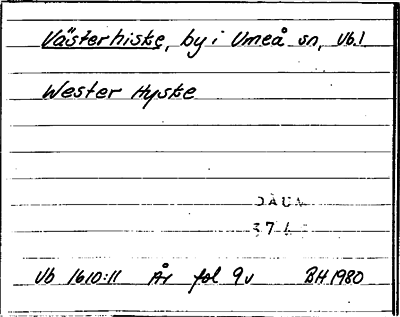 Västerhiske, by i Umeå sn, Vb.l
Wester Hyske
DAUM
Vb 1610:11 År fol 9v BH 1980